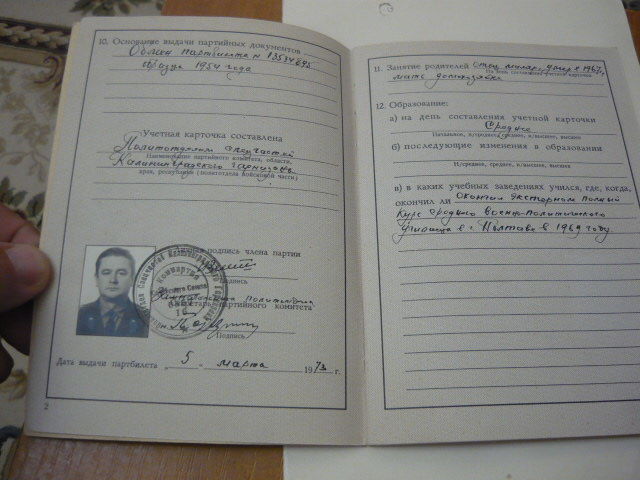 10. Основание выдачи партийных документов
Обмен партбилета N 13534695
образца 1954 года
Учетная карточка составлена
Политотделом спецчастей
Наименование партийного комитета, области,
Калининградского гарнизона
края, республики (политотдела войсковой части)
Личная подпись члена партии
Подпись
Начальник политотдела
Секретарь партийного комитета
Подпись
Дата выдачи партбилета 5 марта 1973 г.
2
11. Занятие родителей отец умер в 1967г,
На день составления учетной карточки
мать домохозяйка
12. Образование:
а) на день составления учетной карточки
Среднее
Начальное, н/среднее, среднее, н/высшее, высшее
б) последующие изменения в образовании
Н/среднее, среднее, н/высшее, высшее
в) в каких учебных заведениях учился, где, когда,
окончил ли Окончил экстерном полный
курс среднего военно-политического
училища в г. Полтава в 1969 году.